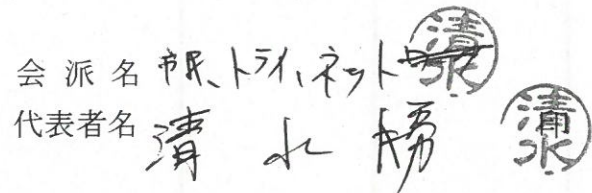 会派名 市民、トライ、ネット 清水
代表者名 清水 勇 印 清水